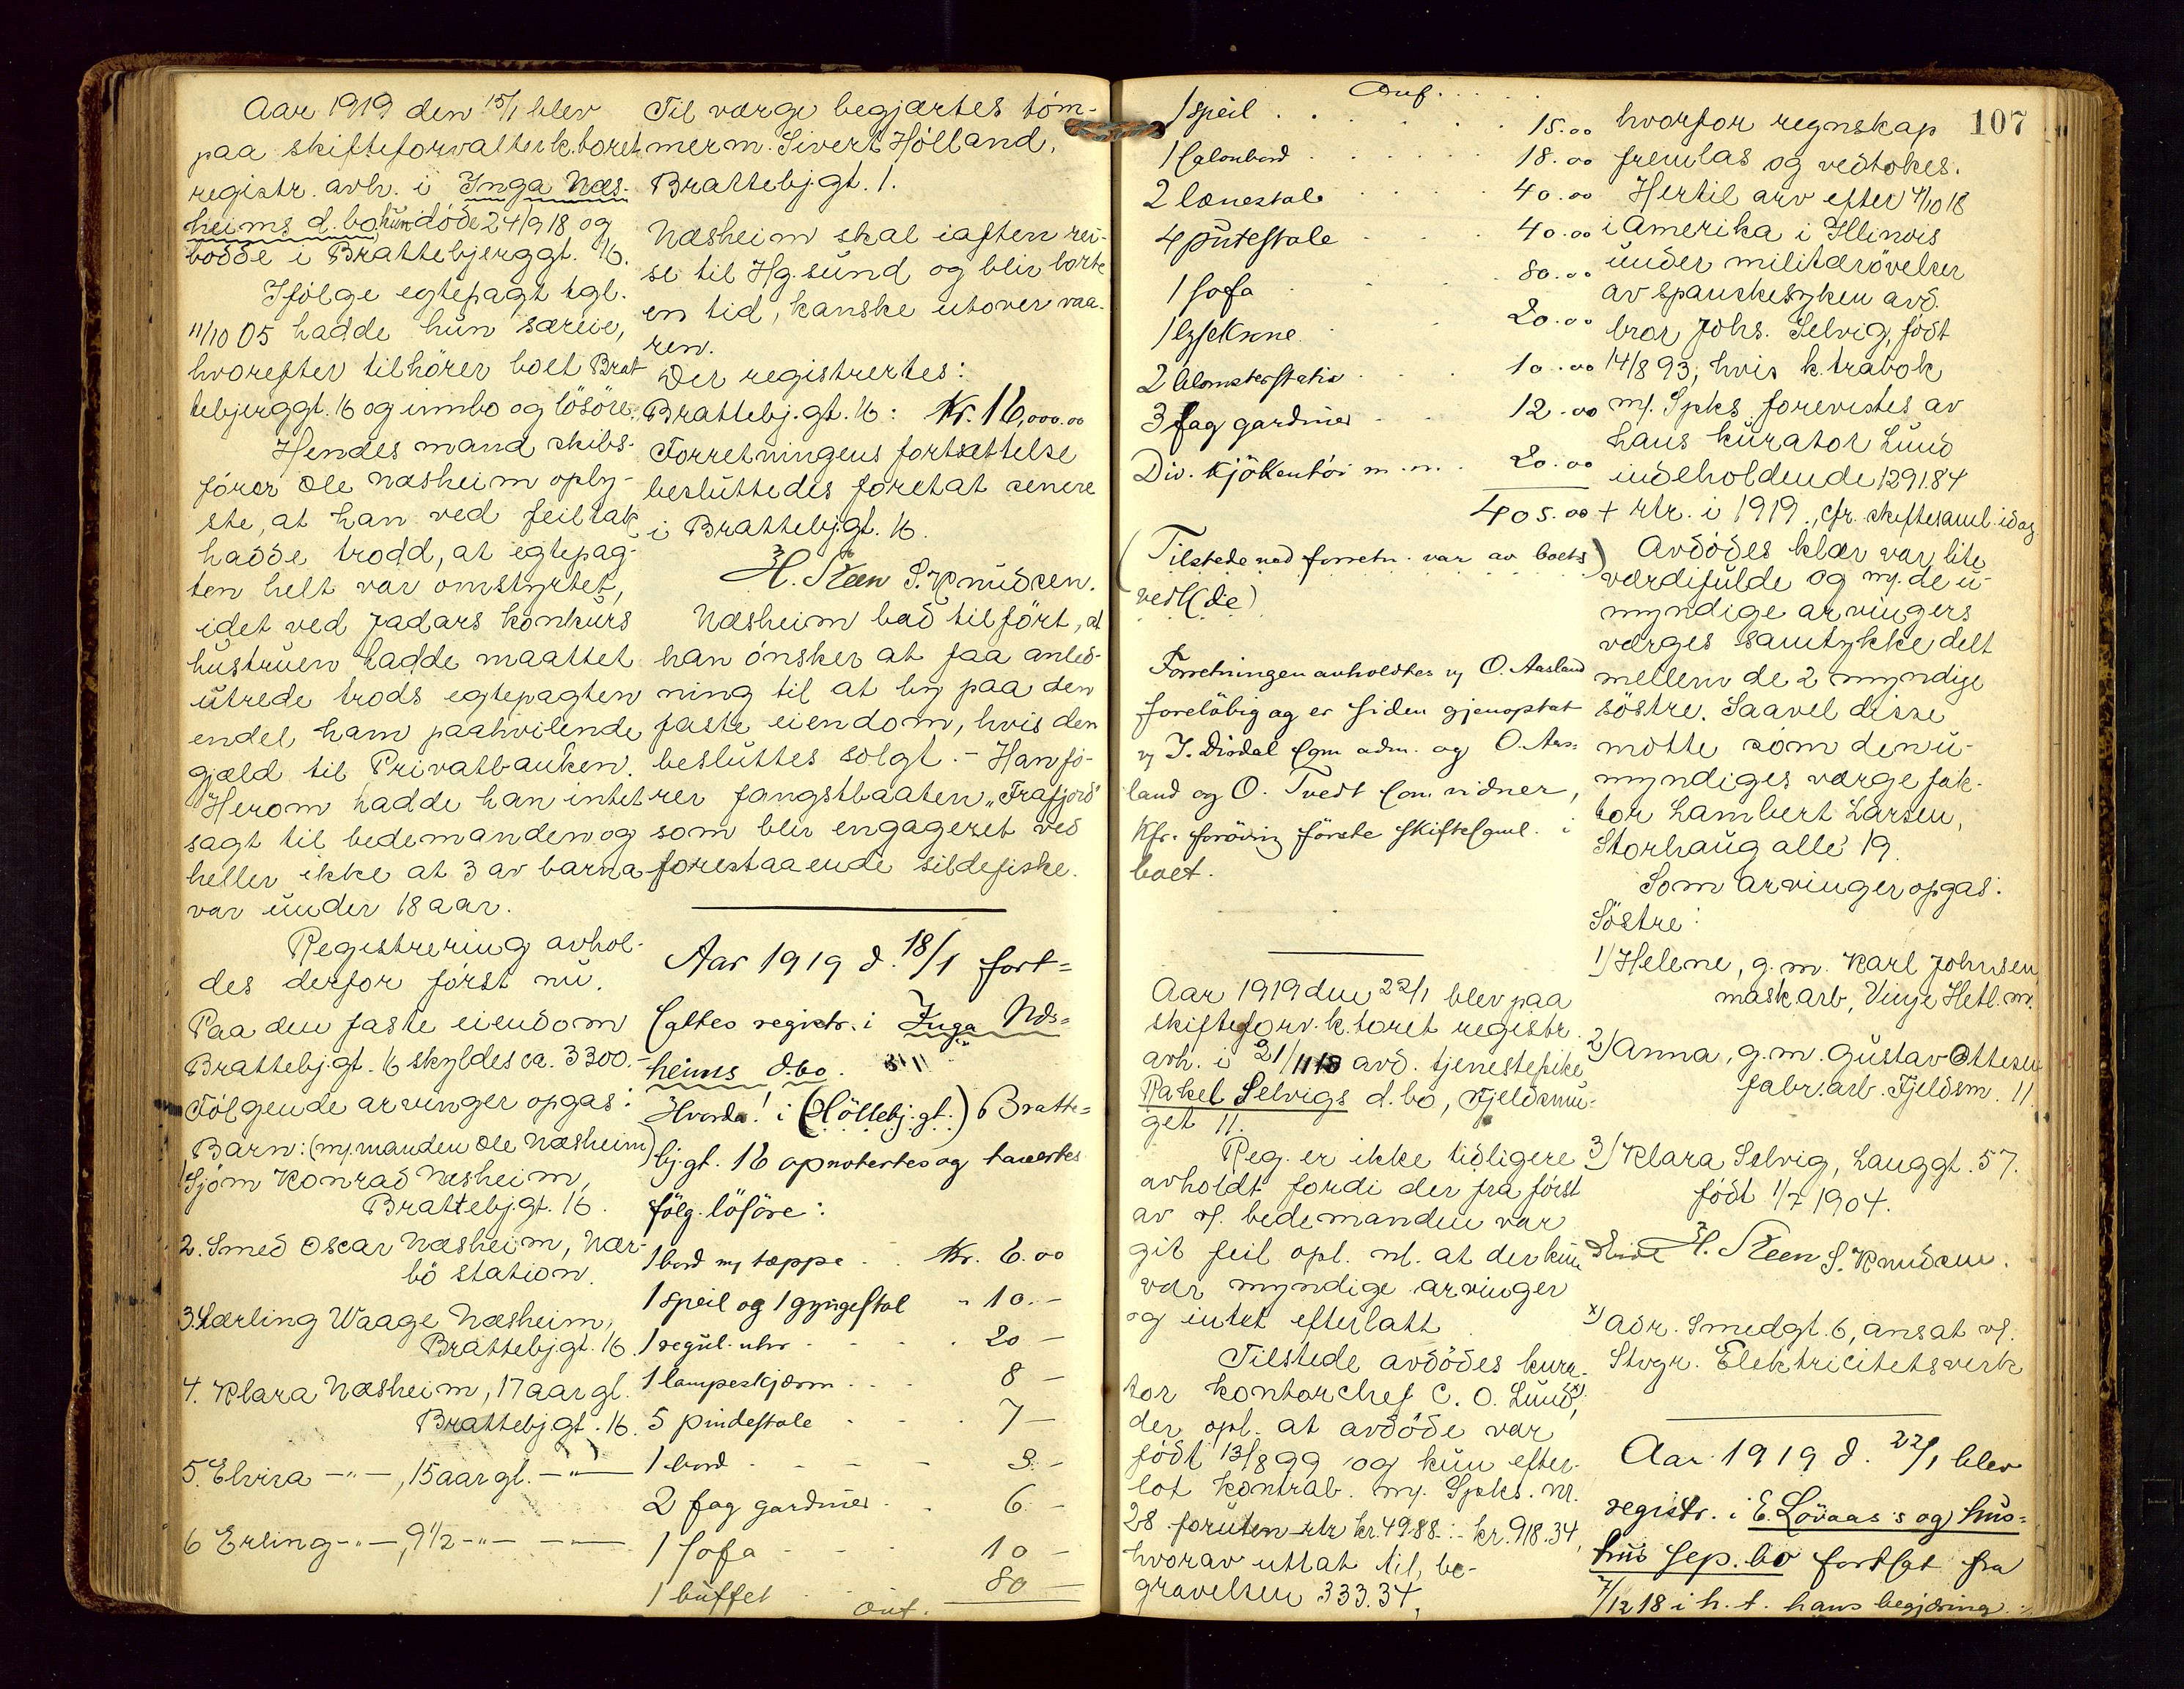 Aar 1919 den 15/1 blev
paa skifteforvalterk.toret
registr. avh. i Inga Næs-
heims d. bo, hun döde 24/9 18 og
bodde i Brattebjerggt. 16.
Ifölge egtepagt tgl.
11/10 05 hadde hun særeie,
hvorefter tilhörer boet Brat
tebjerggt. 16 og innbo og lösöre.
Hendes mand skibs-
förer Ole Næsheim oply-
ste, at han ved feiltak
hadde trodd, at egtepag-
ten helt var omstyrtet,
idet ved Jadars konkurs
hustruen hadde maattet
utrede trods egtepagten
endel ham paahvilende
gjæld til Privatbanken.
Herom hadde han intet
sagt til bedemanden og
heller ikke at 3 av barna
var under 18 aar.
Registrering avhol-
des derfor först nu.
Paa den faste eiendom
Brattebj.gt. 16 skyldes ca. 3300.-
Fölgende arvinger opgas:
Barn: (m/ manden Ole Næsheim)
1 Sjöm Konrad Næsheim,
Brattebj.gt. 16.
2. Smed Oscar Næsheim, Nær-
bö station.
3. Lærling Waage Næsheim,
Brattebj.gt. 16.
4. Klara Næsheim, 17 aar gl.
Brattebj.gt. 16.
5. Elvira -"-, 15 aar gl. -"-
6 Erling -"-, 9 1/2 -"- -"-
Til værge begjærtes töm-
merm. Sivert Hölland,
Brattebj.gt. 1.
Næsheim skal iaften rei-
se til Hg.sund og blir borte
en tid, kanske utover vaa-
ren.
Der registrertes:
Brattebj.gt. 16: Kr. 16,000.00
Forretningens fortsættelse
besluttedes foretat senere
i Brattebj.gt. 16.
H. Steen S. Knudsen.
Næsheim bad tilfört, at
han önsker at faa anled-
ning til at by paa den
faste eiendom, hvis den
besluttes solgt. - Han fö-
rer fangstbaaten „Frafjord"
som blir engageret ved
forestaaende sildefiske.
Aar 1919 d. 18/1 fort=
sattes registr. i Inga Næs=
heims d.bo.
Hvorda! i (Höllebj.gt.) Bratte=
bj.gt. 16 opnotertes og taxertes
fölg. lösöre:
1 bord m/ tæppe . . Kr. 6.00
1 speil og 1 gyngestol " 10.-
1 regul. uhr . . . 20 -
1 lampeskjærm . . . 8 -
5 pindestole . . . 7 -
1 bord - - - - 3 -
2 fag gardiner . . 6 -
1 sofa - - - 10 -
1 buffet . . . 80 -
Ouf.
107
Ouf. . . .
1 speil . . . . 15.00
1 salonbord . . . . 18.00
2 lænestole . . . 40.00
4 putestole . . . 40.00
1 sofa . . . 80.00
1 lysekrone . . 20.00
2 blomsterstativ . . . 10.00
3 fag gardiner . . 12.00
Div. kjökentöi m.m. . 20.00
405.00
(Tilstede ved forretn. var av boets)
vedk(de)
Forretningen avholdtes v/ O. Aasland
forelöbig og er siden gjenoptat
v/ T. Dirdal som adm. og O. Aas=
land og O. Tvedt som vidner,
Kfr. forövrig förste skiftesaml. i
boet.
Aar 1919 den 22/1 blev paa
skifteforv. k.toret registr.
avh. i 21/11 18 avd. tjenestepike
Rakel Selvigs d. bo, Fjeldsmu-
get 11.
Reg. er ikke tidligere
avholdt fordi der fra först
av v/ bedemanden var
git feil opl. nl. at der kun
var myndige arvinger
og intet efterlatt
Tilstede avdödes kura-
tor kontorchef C. O. Lund x),
der opl. at avdöde var
födt 13/8 99 og kun efter-
lot kontrab. m/ Spks. nr.
28 foruten rtr kr. 49.88 :- kr. 918.34,
hvorav uttat til be-
gravelsen 333.34,
hvorfor regnskap
fremlas og vedtokes.
Hertil arv efter 4/10 18
i Amerika i Illinois
under militærövelser
av spanskesyken avd.
bror Johs. Selvig, födt
14/8 93, hvis k.trabok
m/ Spks forevistes av
hans kurator Lund
indeholdende 1291.84
+ rtr. i 1919, cfr. skiftesaml. idag
Avdödes klær var lite
værdifulde og m/ de u-
myndige arvingers
værges samtykke delt
mellem de 2 myndige
söstre. Saavel disse
mötte som den u-
myndiges værge fak-
tor Lambert Larsen,
Storhaug allé 19.
Som arvinger opgas:
Söstre:
1) Helene, g.m. Karl Johnsen
mask.arb, Vinje Hetl. m.
2) Anna, g.m. Gustav Ottesen
fabr.arb. Fjeldsm. 11.
3) Klara Selvig, Lauggt. 57.
födt 1/7 1904.
H. Steen S. Knudsen.
x) Adr. Smedgt. 6, ansat v/
Stvgr. Elektricitetsverk
Aar 1919 d. 22/1 blev
registr. i E. Lövaas's og hus=
trus sep. bo fortsat fra
7/12 18 i h. t. hans begjæring